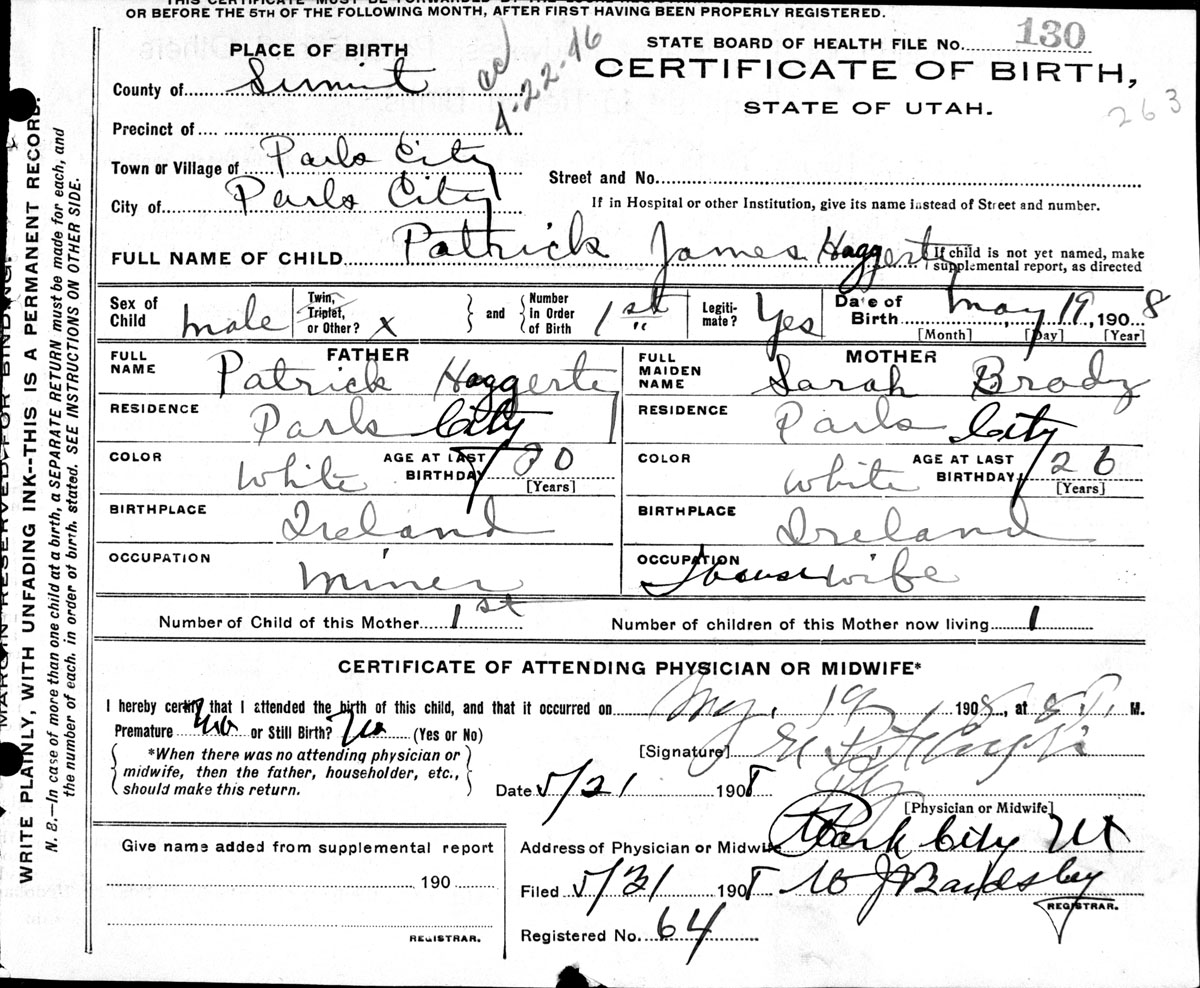 OR BEFORE THE 5TH OF THE FOLLOWING MONTH, AFTER FIRST HAVING BEEN PROPERLY REGISTERED.
STATE BOARD OF HEALTH FILE No. 130
CERTIFICATE OF BIRTH,
STATE OF UTAH.
263
PLACE OF BIRTH
4-22-46
County of Summit
Precinct of
Town or Village of Park City
City of Park City
Street and No.
If in Hospital or other Institution, give its name instead of Street and number.
FULL NAME OF CHILD Patrick James Haggerty
If child is not yet named, make
supplemental report, as directed
Sex of Child male
Twin, Triplet, or Other? x
and
Number in Order of Birth 1st "
Legitimate? Yes
Date of Birth May 19, 1908
[Month] [Day] [Year]
FATHER
FULL NAME Patrick Haggerty
RESIDENCE Park City
COLOR White AGE AT LAST BIRTHDAY 30
[Years]
BIRTHPLACE Ireland
OCCUPATION Miner
MOTHER
FULL MAIDEN NAME Sarah Brody
RESIDENCE Park City
COLOR White AGE AT LAST BIRTHDAY 26
[Years]
BIRTHPLACE Ireland
OCCUPATION Housewife
Number of Child of this Mother 1st
Number of children of this Mother now living 1
CERTIFICATE OF ATTENDING PHYSICIAN OR MIDWIFE*
I hereby certify that I attended the birth of this child, and that it occurred on May 19, 1908, at M.
Premature No or Still Birth? No (Yes or No)
*When there was no attending physician or
midwife, then the father, householder, etc.,
should make this return.
[Signature]
Date 5/21 1908
[Physician or Midwife]
Address of Physician or Midwife Park City Ut
Filed 5/31 1908 W J Bardsley
REGISTRAR.
Registered No. 64
Give name added from supplemental report
190
REGISTRAR.
MARGIN RESERVED FOR BINDING.
WRITE PLAINLY, WITH UNFADING INK--THIS IS A PERMANENT RECORD.
N. B.—In case of more than one child at a birth, a SEPARATE RETURN must be made for each, and
the number of each, in order of birth, stated. SEE INSTRUCTIONS ON OTHER SIDE.